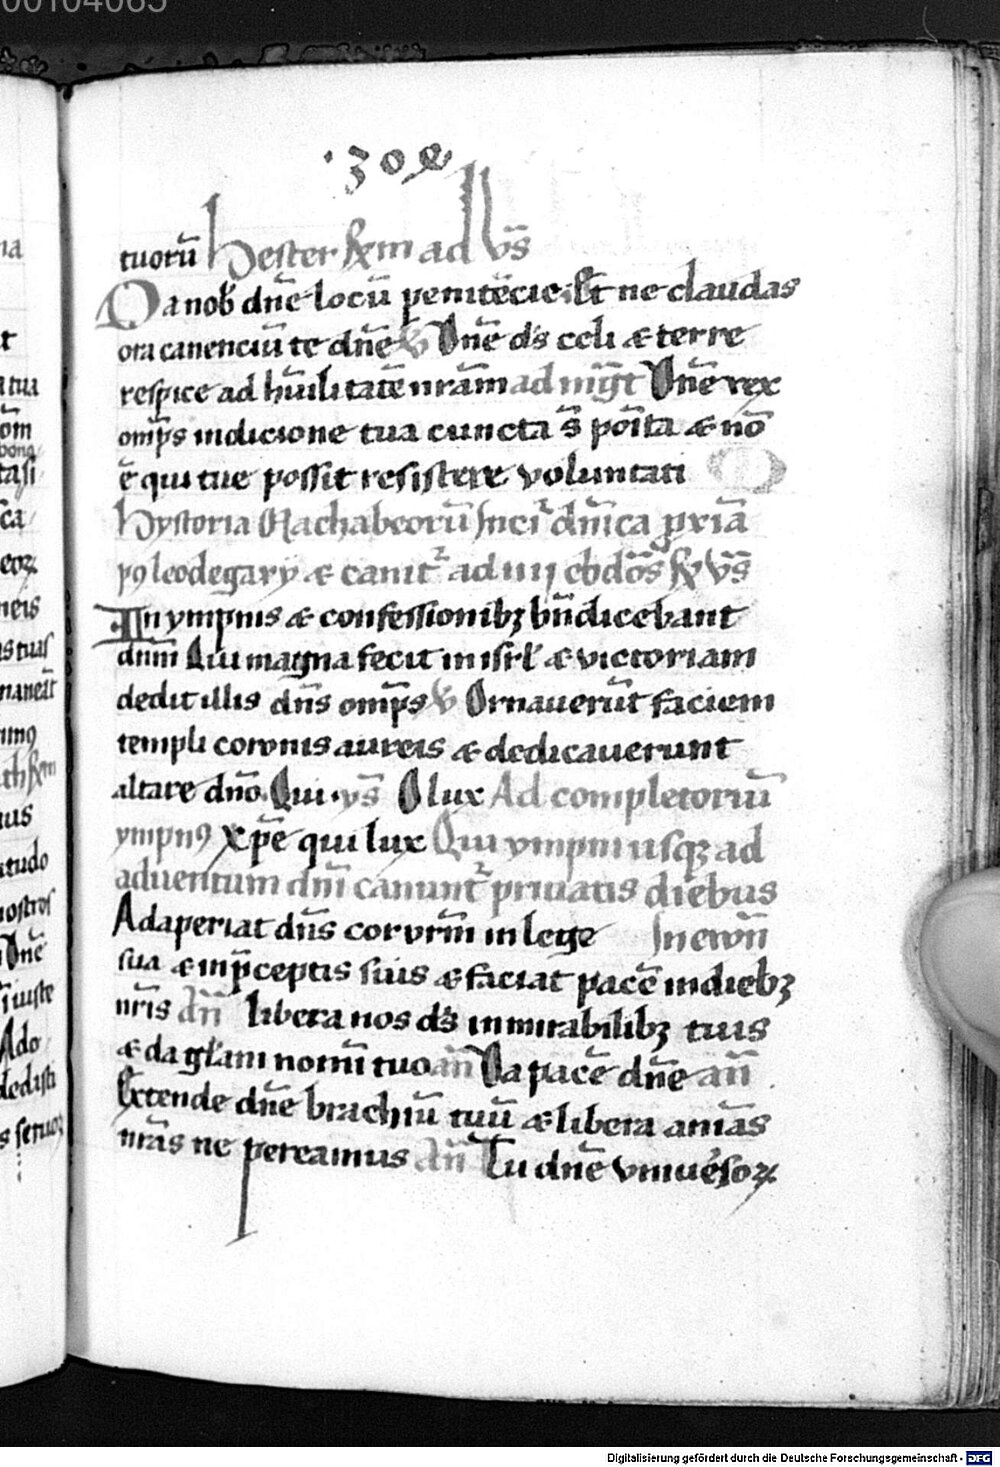 00104065
tuorū hester fērem ad Vs̄
Da nob̄ dn̄e locū penitēcie Et ne claudas
ora canenciū te dn̄e V Dn̄e ds̄ celi & terre
respice ad hūilitatē nrām ad mḡt Dn̄e rex
omp̄s indicione tua cuncta s̄ poīta & nō
ē qui tue possit resistere voluntati
hystoria Machabeorū Inci dn̄ica prīa
p9 leodegary & canit̄ ad iiij ebdōs Vs̄
In ympnis & confessionibꝫ bn̄dicebant
dnm̄ Qui magna fecit in isrl̄ & victoriam
dedit illis dn̄s omp̄s V Ornauerūt faciem
templi coronis aureis & dedicauerunt
altare dn̄o Qui ys̄ O lux Ad completoriū
ympn9 xp̄e qui lux Qui ympni usqꝫ ad
aduentum dn̄i canunt̄ priuatis diebus
Adaperiat dn̄s cor vrm̄ in lege In ewn̄
sua & in p̄ceptis suis & faciat pacē in diebꝫ
nr̄is an̄ libera nos ds̄ in mirabilibꝫ tuis
& da gl̄am nomī tuo an̄ Da pacē dn̄e an̄
Extende dn̄e brachiū tuū & libera aniās
nrās ne pereamus an̄ Tu dn̄e vniuēsoꝝ
Digitalisierung gefördert durch die Deutsche Forschungsgemeinschaft - DFG